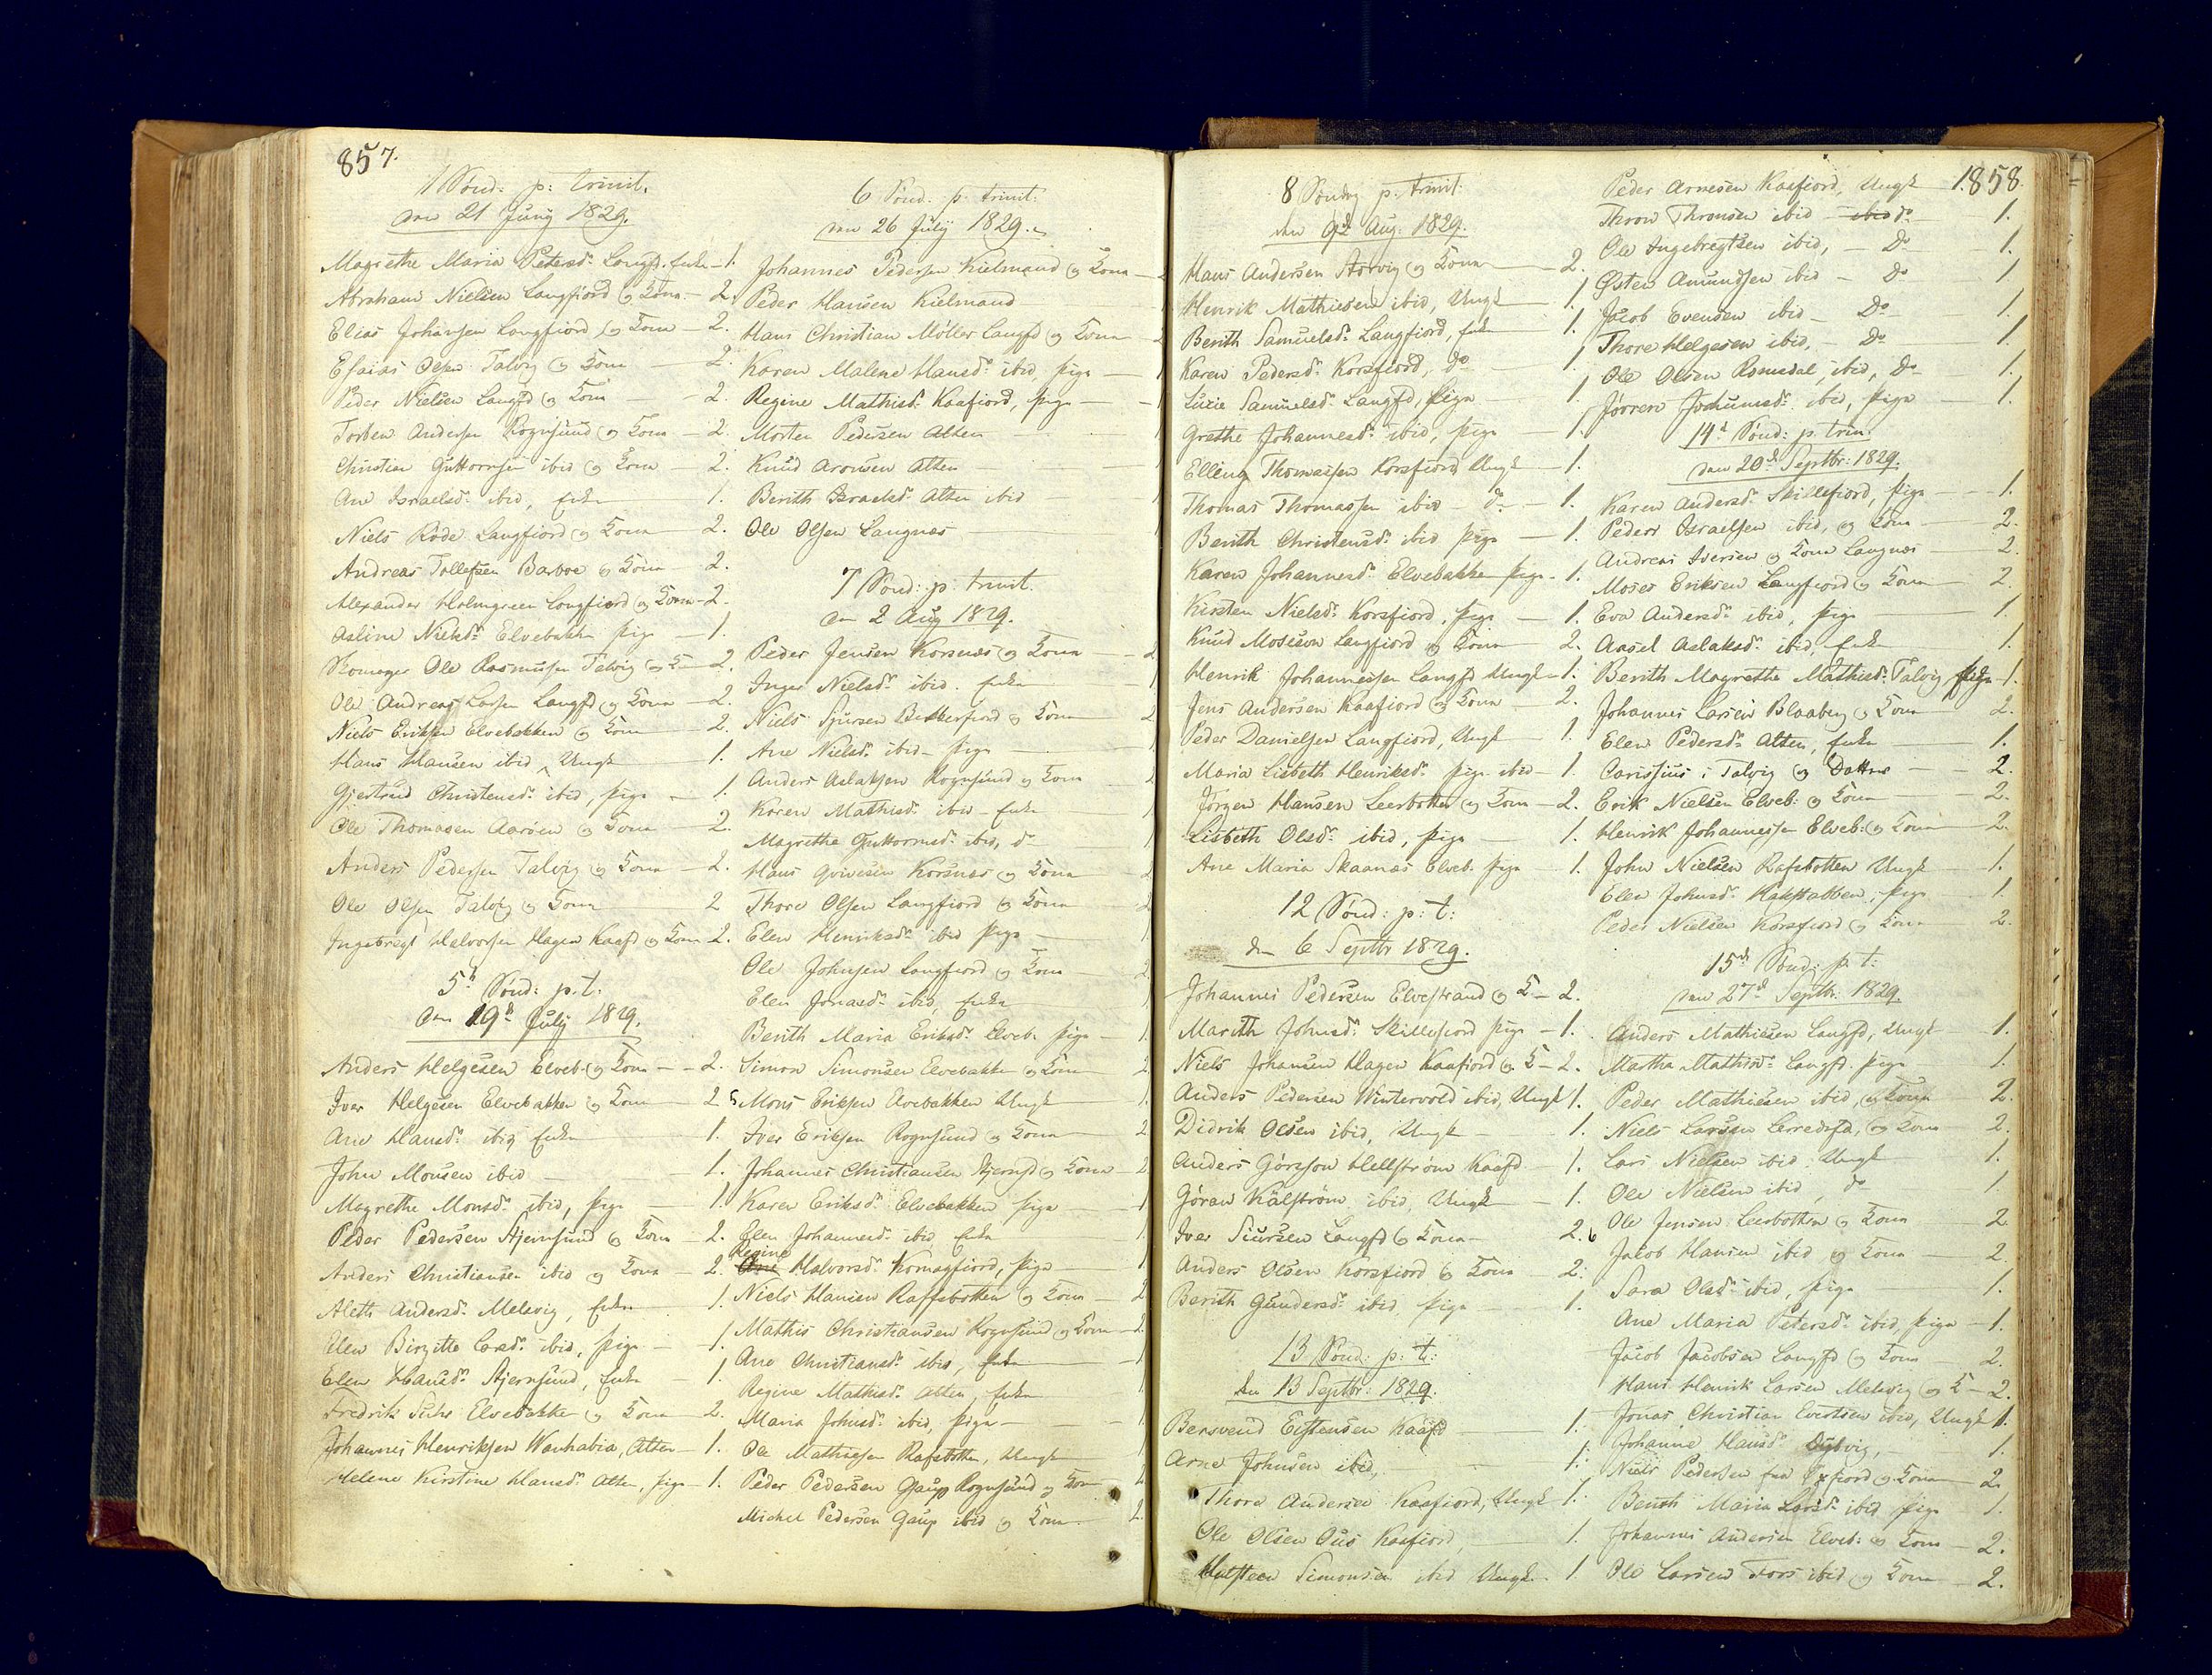 857.
1 Sønd: p: trinit.
den 21 Junij 1829.
Magrethe Maria Petersd: Langfd. Enke - 1.
Abraham Nielsen Langfiord og Kona - 2.
Elias Johansen Langfiord og Kona - 2.
Esaias Olsen Talvig og Kona - 2.
Peder Nielsen Langfd og Kona - 2.
Torben Andersen Rognsund og Kona - 2.
Christian Guttormsen ibid og Kona - 2.
Ane Israelsd: ibid, Enke 1.
Niels Rode Langfiord og Kona - 2.
Andreas Tollefsen Barboe og Kona - 2.
Alexander Holmgreen Langfiord og Kona - 2.
Asline Nielsd: Elvebakken pige - 1.
Skomager Ole Rasmusen Talvig og K - 2.
Ole Andreas Larsen Langfd og Kona - 2.
Niels Eriksen Elvebakken og Kona - 2.
Hans Hansen ibid, Ungk 1.
Gjertrud Christensd: ibid, pige - 1.
Ole Thomasen Aarøen og Kona - 2.
Anders Pedersen Talvig og Kona - 2.
Ole Olsen Talvig og Kona 2
Ingebregt Halvorsen Hagen Kaafd og Kona 2.
5te Sønd: p. t:
den 19de Julij 1829.
Anders Helgesen Elveb. og Kona - 2.
Iver Helgesen Elvebakken og Kona 2
Ane Hansd: ibid Enke 1.
John Monsen ibid - 1.
Magrethe Monsd: ibid, pige - 1.
Peder Pedersen Stjernsund og Kona - 2.
Anders Christiansen ibid og Kona - 2.
Aleth Andersd: Melsvig, Enke 1.
Elen Birgitte Larsd: ibid, pige - 1.
Elen Hansd: Stjernsund, Enke - 1.
Fredrik Suhr Elvebakken og Kona - 2.
Johannes Henriksen Wanhabia, Alten - 1.
Helene Kirstine Hansd: Alten, pige - 1.
6 Sønd. p. trinit:
den 26 Julij 1829.
Johannes Pedersen Kielmand og Kona - 2
Peder Hansen Kielmand
Hans Christian Møller Langfd og Kona 2
Karen Malene Hansd: ibid, pige - 1
Regine Mathisd: Kaafiord, pige - 1
Morten Pedersen Alten - 1
Knud Aronsen Alten 1
Berith Israelsd: Alten ibid 1
Ole Olsen Langnæs - 1
7 Sønd: p: trinit.
den 2 Aug 1829.
Peder Jensen Korsnæs og Kona - 2
Inger Nielsd: ibid. Enke 1
Niels Sjursen Bekkerfiord og Kona 2
Ane Nielsd: ibid - pige - 1
Anders Aslaksen Rognsund og Kona 2
Karen Mathisd: ibid - Enke 1
Magrethe Guttormsd: ibid, do 1
Hans Qvivesen Korsnæs og Kona 2
Thore Olsen Langfiord og Kona 2
Elen Henriksd: ibid pige - 1
Ole Johnsen Langfiord og Kona 2
Elen Jonasd: ibid, Enke 1
Berith Maria Eriksd: Elveb. pige - 1
Simon Simonsen Elvebakken og Kona 2
Mons Eriksen Elvebakken Ungk 1
Iver Eriksen Rognsund og Kona 2
Johannes Christiansen Stjernfd og Kona - 2
Karen Eriksd: Elvebakken pige - 1
Elen Johannesd: ibid Enke 1
Regine
Ane Halvorsd: Komagfiord, pige - 1
Niels Hansen Rafsbotten og Kona - 2
Mathis Christiansen Rognsund og Kona - 2
Ane Christiansd: ibid, Enke 1
Regine Mathisd: Alten, Enke 1
Maria Johnsd: ibid, pige - 1
Ole Mathisen Rafsbotten, Ungk 1
Peder Pedersen Gaup Rognsund og Kona 2
Michel Pedersen Gaup ibid og Kona - 2.
1858.
8 Søndag p: trinit:
den 9de Aug: 1829.
Hans Andersen Storvig og Kona - 2.
Henrik Mathiesen ibid, Ungk 1.
Berith Samuelsd: Langfiord, Enke 1.
Karen Pedersd: Korsfiord, do - 1.
Lucie Samuelsd: Langfd, pige - 1.
Grethe Johannesd: ibid, pige - 1.
Elling Thomassen Korsfiord Ungk - 1.
Thomas Thomassen ibid - do - 1.
Berith Christensd: ibid pige - 1.
Karen Johannesd: Elvebakken pige - 1.
Kirsten Nielsd: Korsfiord, pige - 1.
Knud Mosesen Langfiord og Kona 2.
Henrik Johannessen Langfd Ungk - 1.
Jens Andersen Kaafiord og Kona - 2.
Peder Danielsen Langfiord, Ungk - 1.
Maria Lisbeth Henriksd: pige ibid - 1.
Jørgen Hansen Leerbotten og Kona - 2.
Lisbeth Olsd: ibid, pige - 1.
Ane Maria Skaanæs Elveb. pige - 1.
12 Sønd: p: t:
den 6 Septbr 1829.
Johannes Pedersen Elvestrand og K - 2.
Marith Johnsd: Skillefiord pige - 1.
Niels Johansen Hagen Kaafiord og K - 2.
Anders Pedersen Wintervold ibid, Ungk 1.
Didrik Olsen ibid, Ungk - 1.
Anders Görsson Hellström Kaafd 1.
Göran Kälström ibid, Ungk - 1.
Iver Siursen Langfd og Kona - 2.
Anders Olsen Korsfiord og Kona - 2.
Berith Gundersd: ibid, pige - 1.
13 Sønd: p: t:
den 13 Septbr: 1829.
Bersvend Eistensen Kaafd - 1.
Arne Johnsen ibid, - 1.
Thore Andersen Kaafiord, Ungk 1.
Ole Olsen Ous Kaafiord, - 1.
Halsteen Simonsen ibid Ungk - 1
Peder Arnesen Kaafiord, Ungk
Thron Thronsen ibid - ibid do 1.
Ole Ingebregtsen ibid, - Do 1.
Østen Amundsen ibid - Do 1
Jacob Evensen ibid - Do 1.
Thore Helgesen ibid, - Do 1.
Ole Olsen Romsdal, ibid, Do 1.
Jørren Jochumsd: ibid, pige - 1.
14de Sønd: p: trin:
den 20de Septbr: 1829.
Karen Andersd: Skillefiord, pige - 1.
Peder Israelsen ibid, og Kona 2.
Andreas Iversen og Kona Langnæs - 2.
Moses Eriksen Langfiord og Kona 2
Eva Andersd: ibid, pige 1.
Aasel Aslaksd: ibid, Enke 1.
Berith Magrethe Mathisd: Talvig pige - 1.
Johannes Larsen Blaaberg og Kona 2.
Elen Pedersd: Alten, Enke 1.
Carissius i Talvig og Datter - 2.
Erik Nielsen Elveb: og Kona - 2.
Henrik Johannessen Elveb: og Kona 2.
John Nielsen Rafsbotten Ungk - 1.
Elen Johnsd: Rafsbotten, pige 1.
Peder Nielsen Korsfiord og Kona 2.
15de Sønd: p: t:
den 27de Septbr: 1829.
Anders Mathiesen Langfd, Ungk 1.
Martha Mathisd: Langfd. pige 1.
Peder Mathiesen ibid, og Kona 2.
Niels Larsen Lerredsfd, og Kona 2.
Lars Nielsen ibid, Ungk 1.
Ole Nielsen ibid, do 1
Ole Jensen Leerbotten og Kona 2
Jacob Hansen ibid og Kona - 2
Sara Olsd: ibid, pige 1.
Ane Maria Petersd: ibid, pige - 1.
Jacob Jacobsen Langfd og Kona - 2.
Hans Henrik Larsen Melsvig og K - 2.
Jonas Christian Evertsen ibid, Ungk 1.
Johanne Hansd: - 1.
Niels Pedersen fra Øxfiord og Kona 2.
Berith Maria Larsd: ibid pige 1.
Johannes Andersen Elveb: og Kona - 2.
Ole Larsen Fors ibid og Kona - 2.